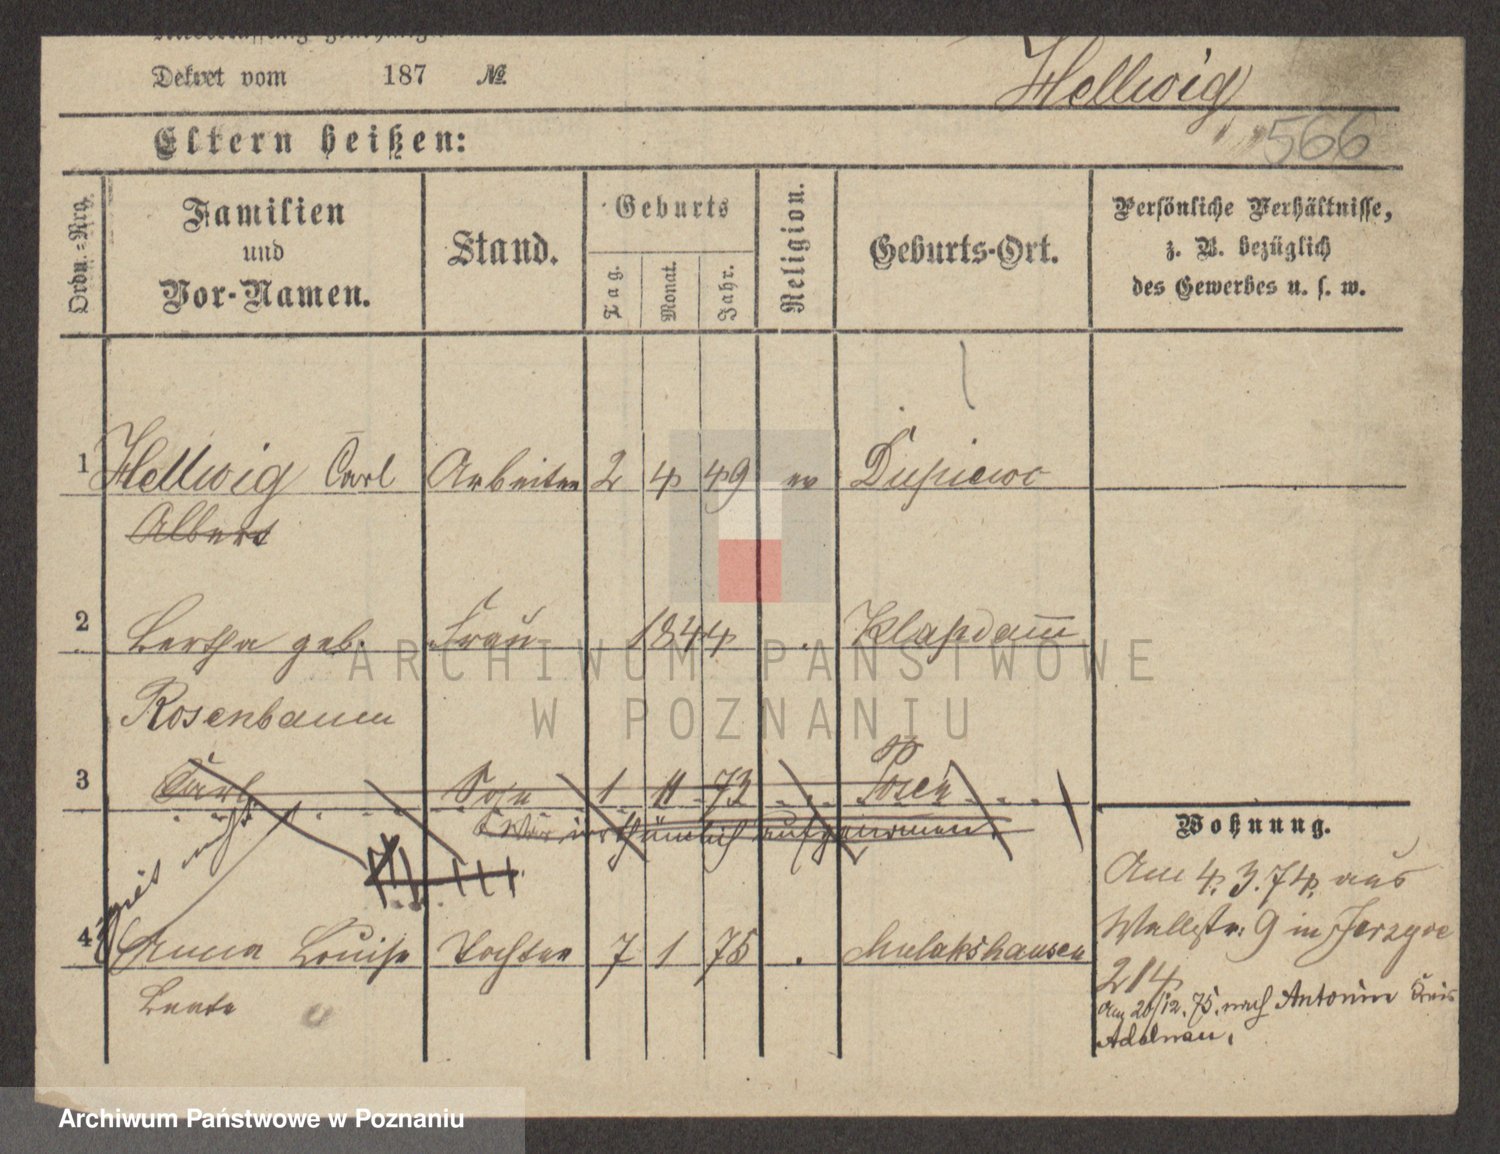 Dekret vom 187 №
Hellwig
566
Eltern heißen:
Ordn.=Nro.
Familien
und
Vor-Namen.
Stand.
Geburts
Tag.
Monat.
Jahr.
Religion.
Geburts-Ort.
Persönliche Verhältnisse,
z. B. bezüglich
des Gewerbes u. s. w.
1 Hellwig Carl Arbeiter 2 4 49 ev Dupiewo
Albert
2 Bertha geb. Frau 1844 Klapdam
Rosenbaum
3 Carl Sohn 1 11 73 Posen
irrthümlich aufgenommen.
Wohnung.
Am 4.3.74 aus
Wallstr. 9 in Jerzyce
214
4 Anna Louise Tochter 7 1 75 Mulakshausen
Beate
Am 20/12.75. nach Antonin Kreis
Adelnau.
ARCHIWUM PAŃSTWOWE
W POZNANIU
Archiwum Państwowe w Poznaniu